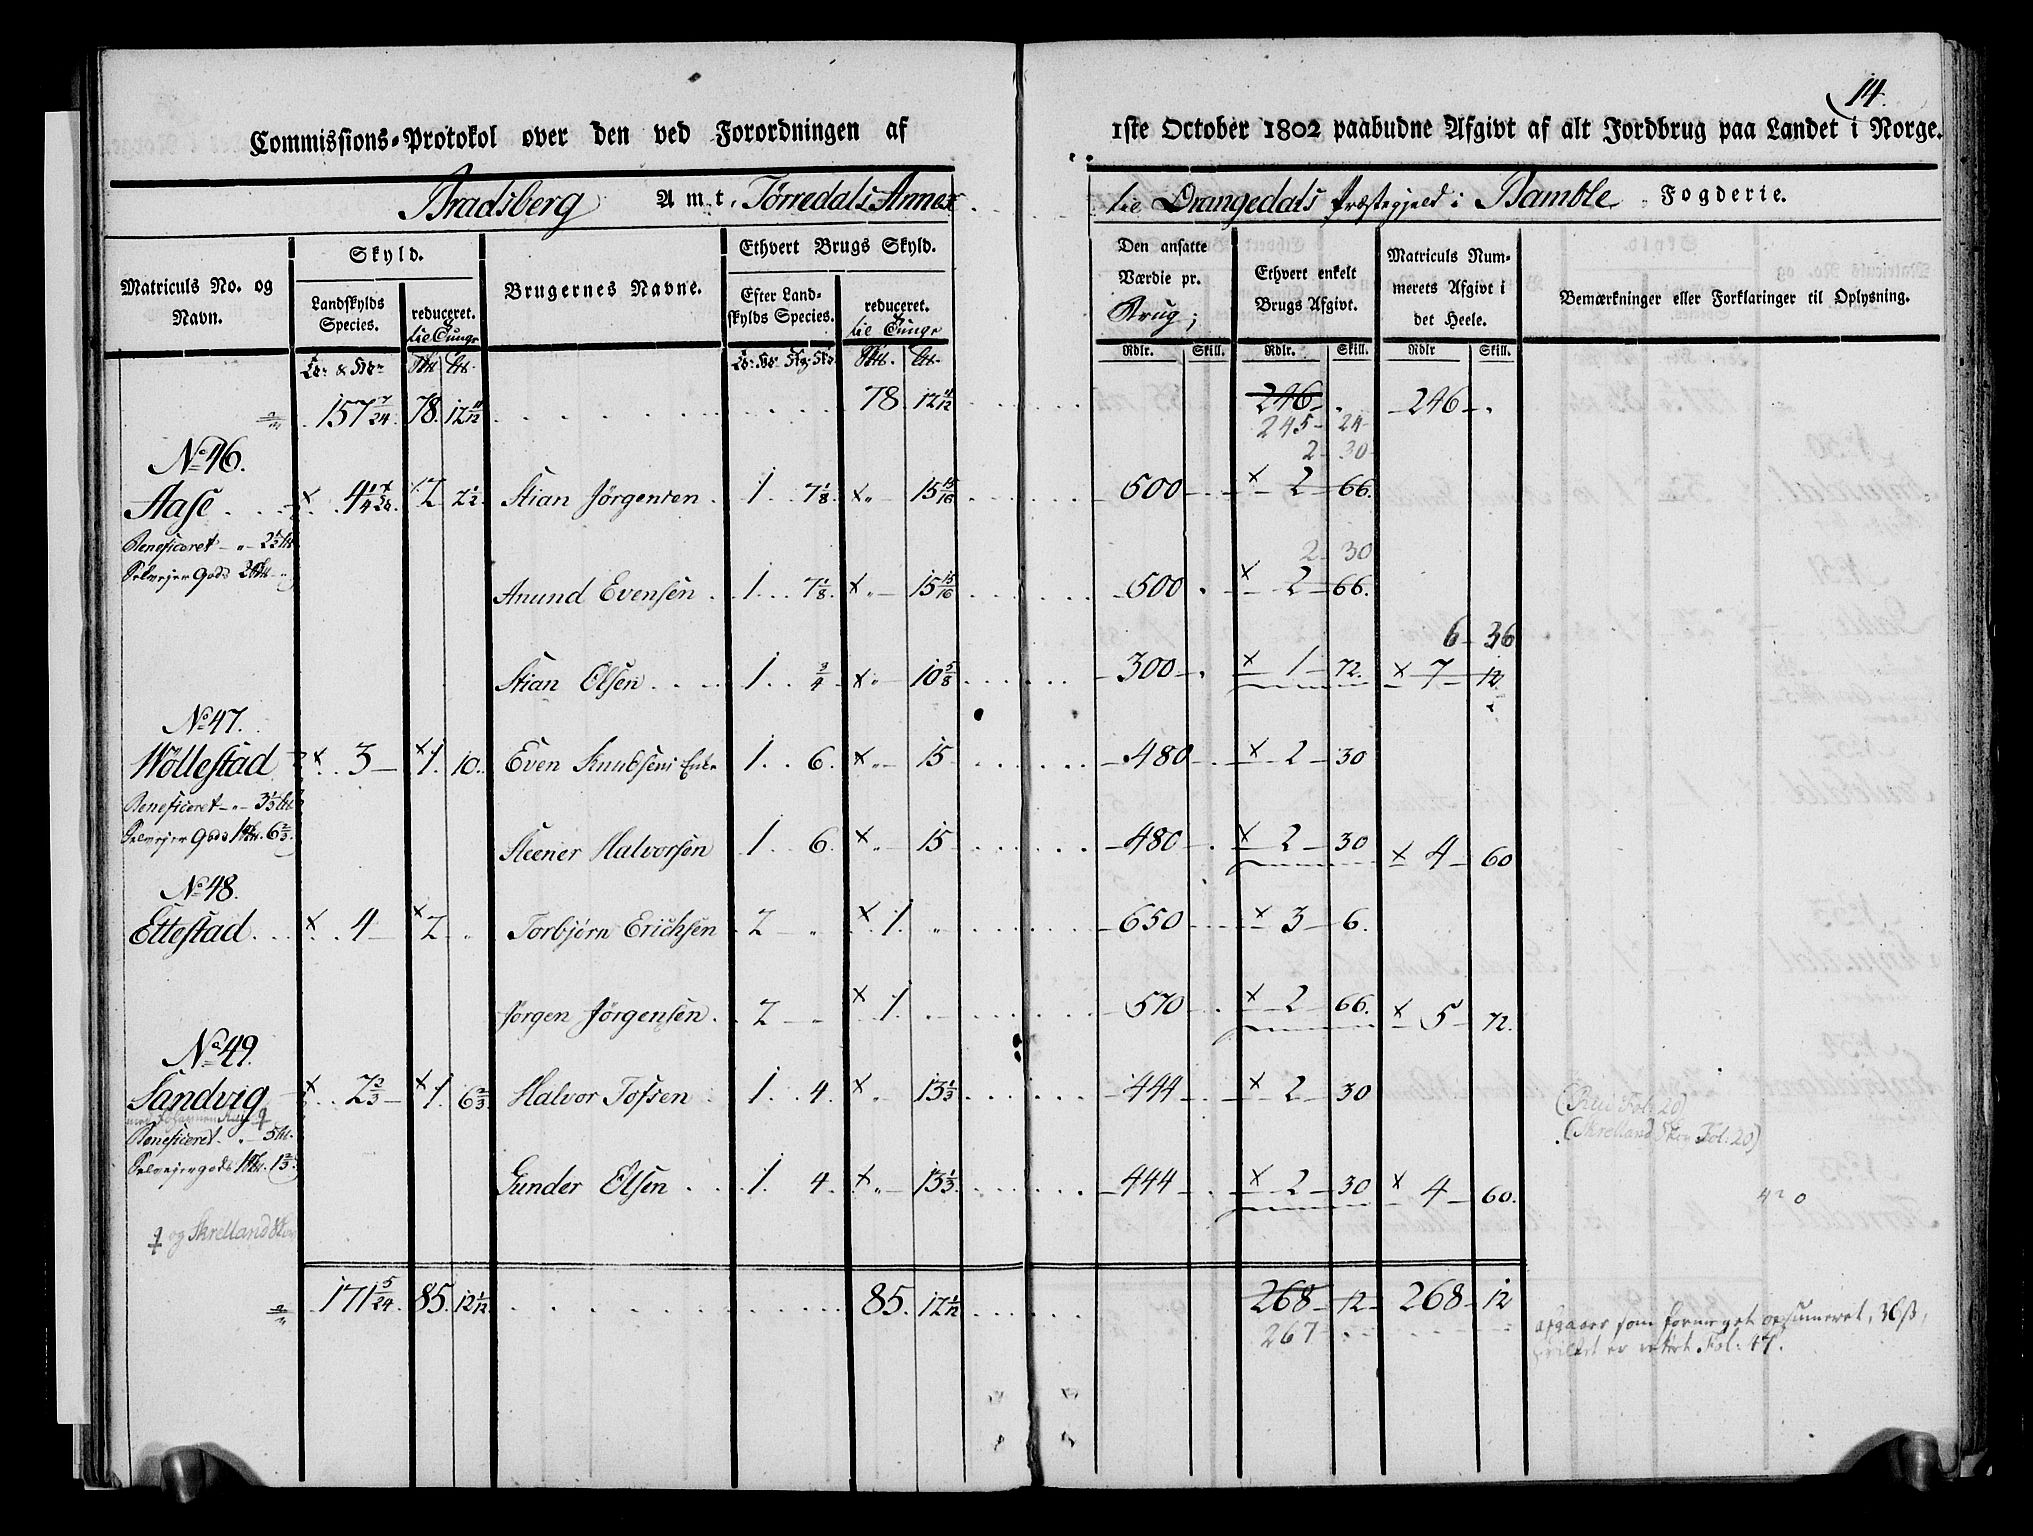 14.
Commissions-Protokol over den ved Forordningen af 1ste October 1802 paabudne Afgivt af alt Jordbrug paa Landet i Norge.
Bradsberg Amt, Tørredals Annex til Drangedals Præstegjeld i Bamble Fogderie.
Matriculs No. og Navn.
Skyld.
Landskylds Species.
reduceret. til Tunge
Brugernes Navne.
Ethvert Brugs Skyld.
Efter Landskylds Species.
reduceret. til Tunge
Den ansatte Værdie pr. Brug;
Ethvert enkelt Brugs Afgivt.
Matriculs Nummerets Afgivt i det Heele.
Bemærkninger eller Forklaringer til Oplysning.
Rdlr. Skill. Rdlr. Skill. Rdlr Skill.
157 7/24. 78. 12 11/12 78. 12 11/12 246 - 246 - .
245 - 24
No 46.
2 - 30
Aase x 4 17/24 x 2 2 1/2 Stian Jörgensen 1 7 1/8 x 15 15/16 600 x 2 - 66.
Beneficeret - „ - 2 1/2
Selvejer Gods 2
2 - 30
Anund Evensen 1 7 1/8 x 15 15/16 600 x 2 - 66.
6 - 36
Stian Olsen 1 3/4 x 10 5/8 300 x 1 - 72. x 7 - 12
No 47.
Wöllestad x 3 x 1. 10. Even Knudsens Enke 1. 6. x 15 480 x 2 - 30
Beneficeret - „ - 3 1/3
Selvejer Gods 1 6 2/3
Steener Halvorsen 1 6. x 15 480 x 2 - 30 x 4 - 60
No 48.
Ettestad x 4 x 2 „ Torbjörn Erichsen 2 „ x 1. „ 650 x 3 - 6.
Jörgen Jörgensen 2 x 1. 570 x 2 - 66. x 5 - 72.
No 49.
Sandvig x 2 2/3 x 1. 6 2/3 Halvor Tofsen 1 4. x 13 1/3 444 x 2 - 30
(Rui Fol: 20)
Beneficeret. „ - 5
(Skrelland Skov Fol: 20)
Selvejergods 1 1 2/3
Gunder Olsen 1. 4. x 13 1/3 444 x 2 - 30 x 4 - 60.
og Skrelland Skov
171 5/24 85. 12 1/12 85. 12 1/12 268 - 12 268 - 12
267
afgaaer som formeget opsumeret, 36 ß,
er Fol: 47.